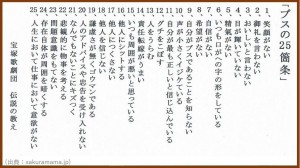 「ブスの25箇条」
1 笑顔がない
2 お礼を言わない
3 おいしいと言わない
4 目が輝いていない
5 精気がない
6 いつも口がへの字の形をしている
7 自信がない
8 希望や信念がない
9 自分がブスであることを知らない
10 声が小さくイジケている
11 自分が最も正しいと信じ込んでいる
12 グチをこぼす
13 他人をうらむ
14 責任転嫁がうまい
15 いつも周囲が悪いと思っている
16 他人にシットする
17 他人につくさない
18 他人を信じない
19 謙虚さがなくゴウマンである
20 人のアドバイスや忠告を受け入れない
21 なんでもないことにキズつく
22 悲観的に物事を考える
23 問題意識を持っていない
24 存在自体が周囲を暗くする
25 人生においても仕事においても意欲がない
宝塚歌劇団 伝説の教え
[出典：sakuramama.jp]